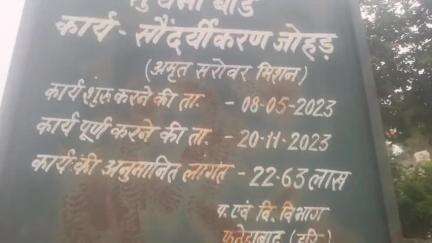 कार्य - सौंदर्यीकरण जोहड़
(अमृत सरोवर मिशन)
कार्य शुरू करने की ता. - 08-05-2023
कार्य पूर्ण करने की ता. - 20-11-2023
कार्य की अनुमानित लागत - 22.63 लाख
प. एवं वि. विभाग
फतेहाबाद (हरि.)